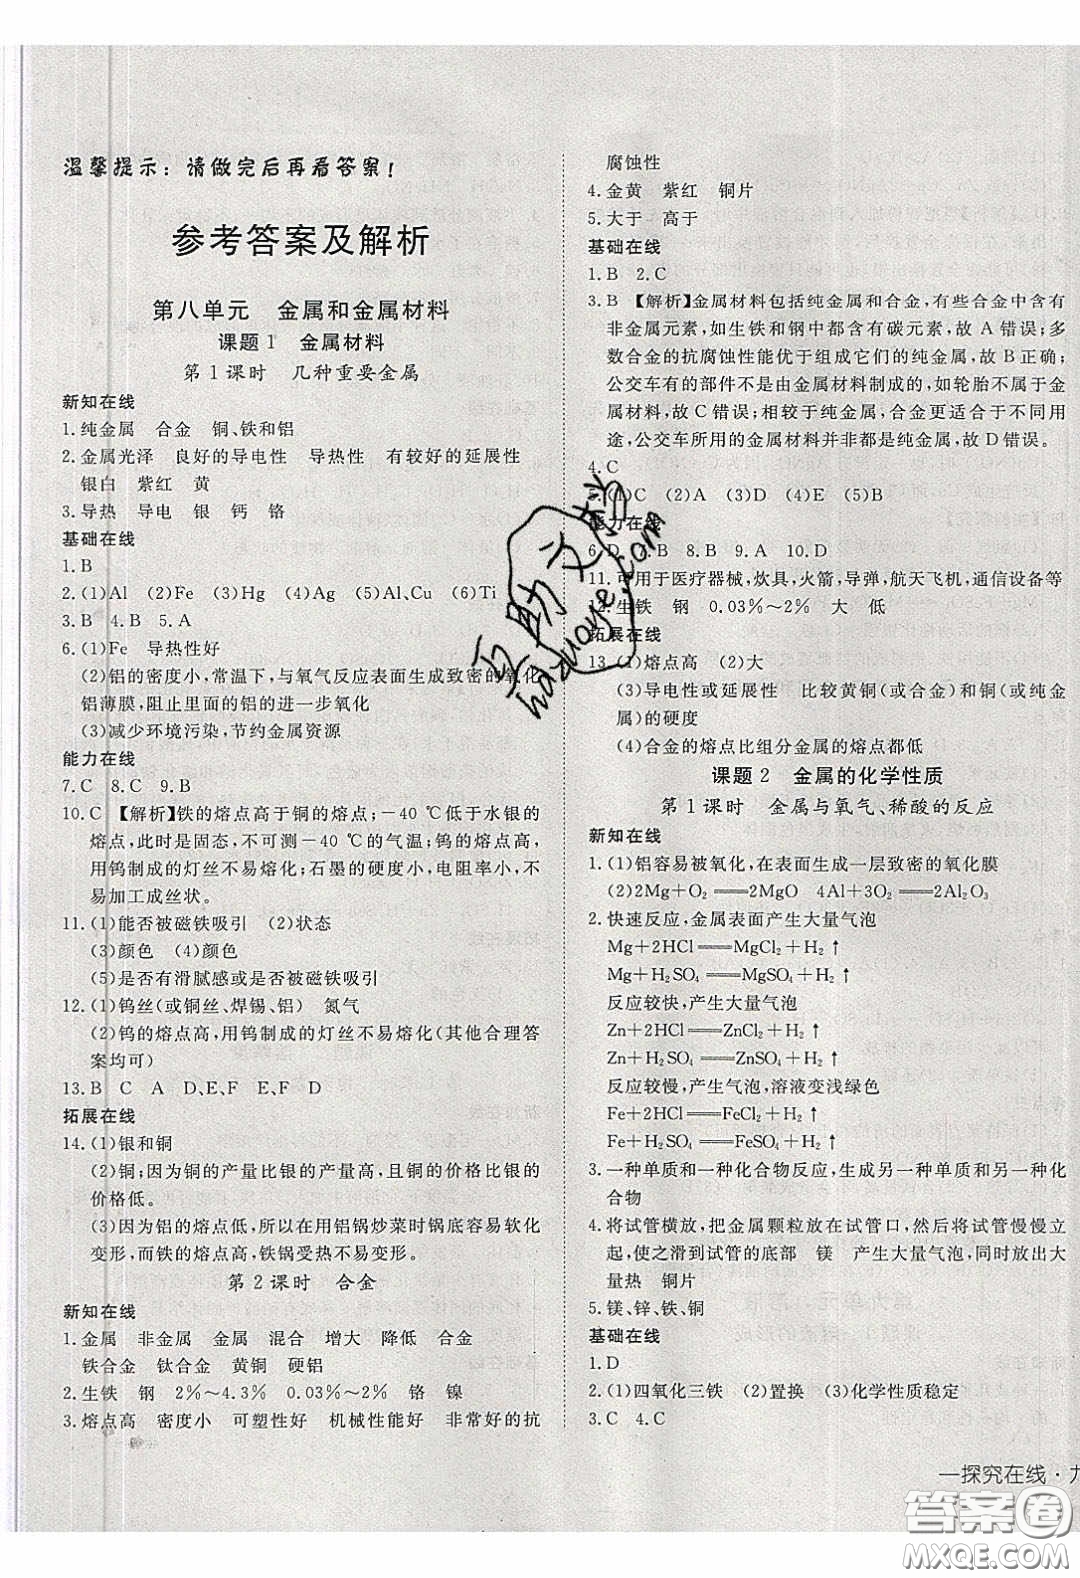 温馨提示：请做完后再看答案！
参考答案及解析
第八单元　金属和金属材料
课题1　金属材料
第1课时　几种重要金属
新知在线
1.纯金属　合金　铜、铁和铝
2.金属光泽　良好的导电性　导热性　有较好的延展性
银白　紫红　黄
3.导热　导电　银　钙　铬
基础在线
1.B
2.(1)Al　(2)Fe　(3)Hg　(4)Ag　(5)Al、Cu　(6)Ti
3.B　4.B　5.A
6.(1)Fe　导热性好
(2)铝的密度小，常温下，与氧气反应表面生成致密的氧化
铝薄膜，阻止里面的铝的进一步氧化
(3)减少环境污染，节约金属资源
能力在线
7.C　8.C　9.B
10.C　【解析】铁的熔点高于铜的熔点；－40 ℃低于水银的
熔点，此时是固态，不可测－40 ℃的气温；钨的熔点高，
用钨制成的灯丝不易熔化；石墨的硬度小，电阻率小，不
易加工成丝状。
11.(1)能否被磁铁吸引　(2)状态
(3)颜色　(4)颜色
(5)是否有滑腻感或是否被磁铁吸引
12.(1)钨丝(或铜丝、焊锡、铝)　氮气
(2)钨的熔点高，用钨制成的灯丝不易熔化(其他合理答
案均可)
13.B　C　A　D、E、F　E、F　D
拓展在线
14.(1)银和铜
(2)铜；因为铜的产量比银的产量高，且铜的价格比银的
价格低。
(3)因为铝的熔点低，所以在用铝锅炒菜时锅底容易软化
变形，而铁的熔点高，铁锅受热不易变形。
第2课时　合金
新知在线
1.金属　非金属　金属　混合　增大　降低　合金
铁合金　钛合金　黄铜　硬铝
2.生铁　钢　2%～4.3%　0.03%～2%　铬　镍
3.熔点高　密度小　可塑性好　机械性能好　非常好的抗
腐蚀性
4.金黄　紫红　铜片
5.大于　高于
基础在线
1.B　2.C
3.B　【解析】金属材料包括纯金属和合金，有些合金中含有
非金属元素，如生铁和钢中都含有碳元素，故 A 错误；多
数合金的抗腐蚀性能优于组成它们的纯金属，故 B 正确；
公交车有的部件不是由金属材料制成的，如轮胎不属于金
属材料，故 C 错误；相较于纯金属，合金更适合于不同的用
途，公交车所用的金属材料并非都是纯金属，故 D 错误。
4.C
5.(1)C　(2)A　(3)D　(4)E　(5)B
能力在线
6.D　7.B　8.B　9.A　10.D
11.可用于医疗器械，炊具，火箭，导弹，航天飞机，通信设备等
12.生铁　钢　0.03%～2%　大　低
拓展在线
13.(1)熔点高　(2)大
(3)导电性或延展性　比较黄铜(或合金)和铜(或纯金
属)的硬度
(4)合金的熔点比组分金属的熔点都低
课题2　金属的化学性质
第1课时　金属与氧气、稀酸的反应
新知在线
1.(1)铝容易被氧化，在表面生成一层致密的氧化膜
(2)2Mg＋O₂═══2MgO　4Al＋3O₂═══2Al₂O₃
2.快速反应，金属表面产生大量气泡
Mg＋2HCl═══MgCl₂＋H₂↑
Mg＋H₂SO₄═══MgSO₄＋H₂↑
反应较快，产生大量气泡
Zn＋2HCl═══ZnCl₂＋H₂↑
Zn＋H₂SO₄═══ZnSO₄＋H₂↑
反应较慢，产生气泡，溶液变浅绿色
Fe＋2HCl═══FeCl₂＋H₂↑
Fe＋H₂SO₄═══FeSO₄＋H₂↑
3.一种单质和一种化合物反应，生成另一种单质和另一种化
合物
4.将试管横放，把金属颗粒放在试管口，然后将试管慢慢立
起，使之滑到试管的底部　镁　产生大量气泡，同时放出大
量热　铜片
5.镁、锌、铁、铜
基础在线
1.D
2.(1)四氧化三铁　(2)置换　(3)化学性质稳定
3.C　4.C
一探究在线·九
互助文学
hazuoye.com
答案圈
MXQE.COM